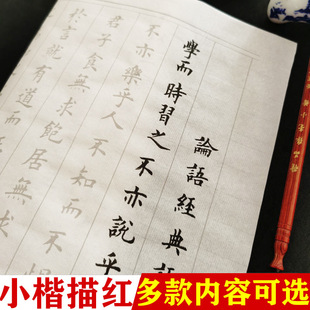 論語經典語
學而時習之不亦說乎
不亦樂乎人不知而不
君子食無求飽居無求
於言就有道而
小楷描红
多款内容可选